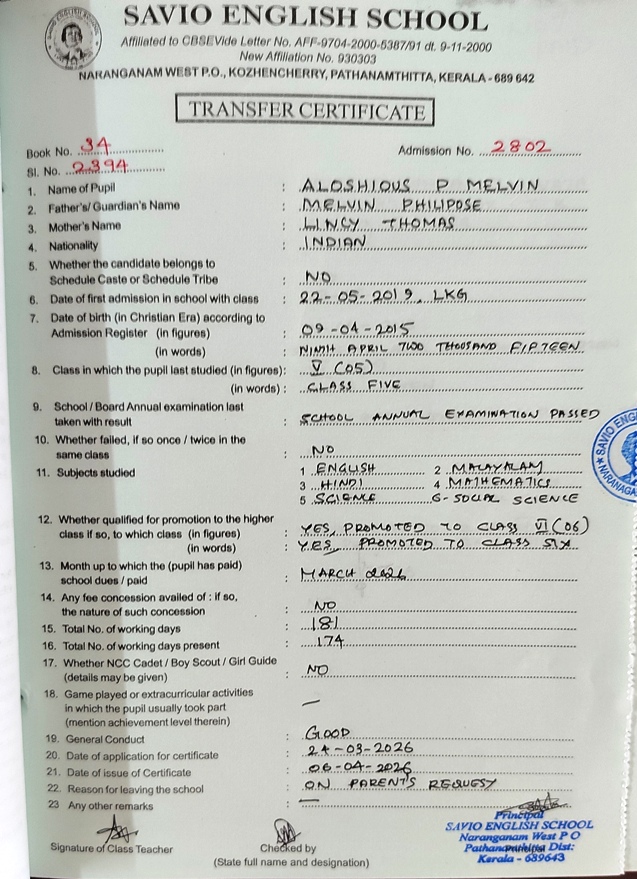 SAVIO ENGLISH SCHOOL
Affiliated to CBSEVide Letter No. AFF-9704-2000-5387/91 dt. 9-11-2000
New Affiliation No. 930303
NARANGANAM WEST P.O., KOZHENCHERRY, PATHANAMTHITTA, KERALA - 689 642
TRANSFER CERTIFICATE
Book No. 34
Admission No. 2802
Sl. No. 2394
1. Name of Pupil : ALOSHIOUS P MELVIN
2. Father's/ Guardian's Name : MELVIN PHILIPOSE
3. Mother's Name : LINCY THOMAS
4. Nationality : INDIAN
5. Whether the candidate belongs to
Schedule Caste or Schedule Tribe : NO
6. Date of first admission in school with class : 22-05-2019, LKG
7. Date of birth (in Christian Era) according to
Admission Register (in figures) : 09-04-2015
(in words) : NINTH APRIL TWO THOUSAND FIFTEEN
8. Class in which the pupil last studied (in figures) : V (05)
(in words) : CLASS FIVE
9. School / Board Annual examination last
taken with result : SCHOOL ANNUAL EXAMINATION PASSED
10. Whether failed, if so once / twice in the
same class : NO
11. Subjects studied : 1 ENGLISH 2 MALAYALAM
3 HINDI 4 MATHEMATICS
5 SCIENCE 6- SOCIAL SCIENCE
12. Whether qualified for promotion to the higher
class if so, to which class (in figures) : YES, PROMOTED TO CLASS VI (06)
(in words) : YES, PROMOTED TO CLASS SIX
13. Month up to which the (pupil has paid)
school dues / paid : MARCH 2026
14. Any fee concession availed of : if so,
the nature of such concession : NO
15. Total No. of working days : 181
16. Total No. of working days present : 174
17. Whether NCC Cadet / Boy Scout / Girl Guide
(details may be given) : NO
18. Game played or extracurricular activities
in which the pupil usually took part : —
(mention achievement level therein)
19. General Conduct : GOOD
20. Date of application for certificate : 24-03-2026
21. Date of issue of Certificate : 06-04-2026
22. Reason for leaving the school : ON PARENT'S REQUEST
23 Any other remarks : —
Signature of Class Teacher
Checked by
(State full name and designation)
Principal
SAVIO ENGLISH SCHOOL
Naranganam West P O
Pathanamthitta Dist:
Kerala - 689643